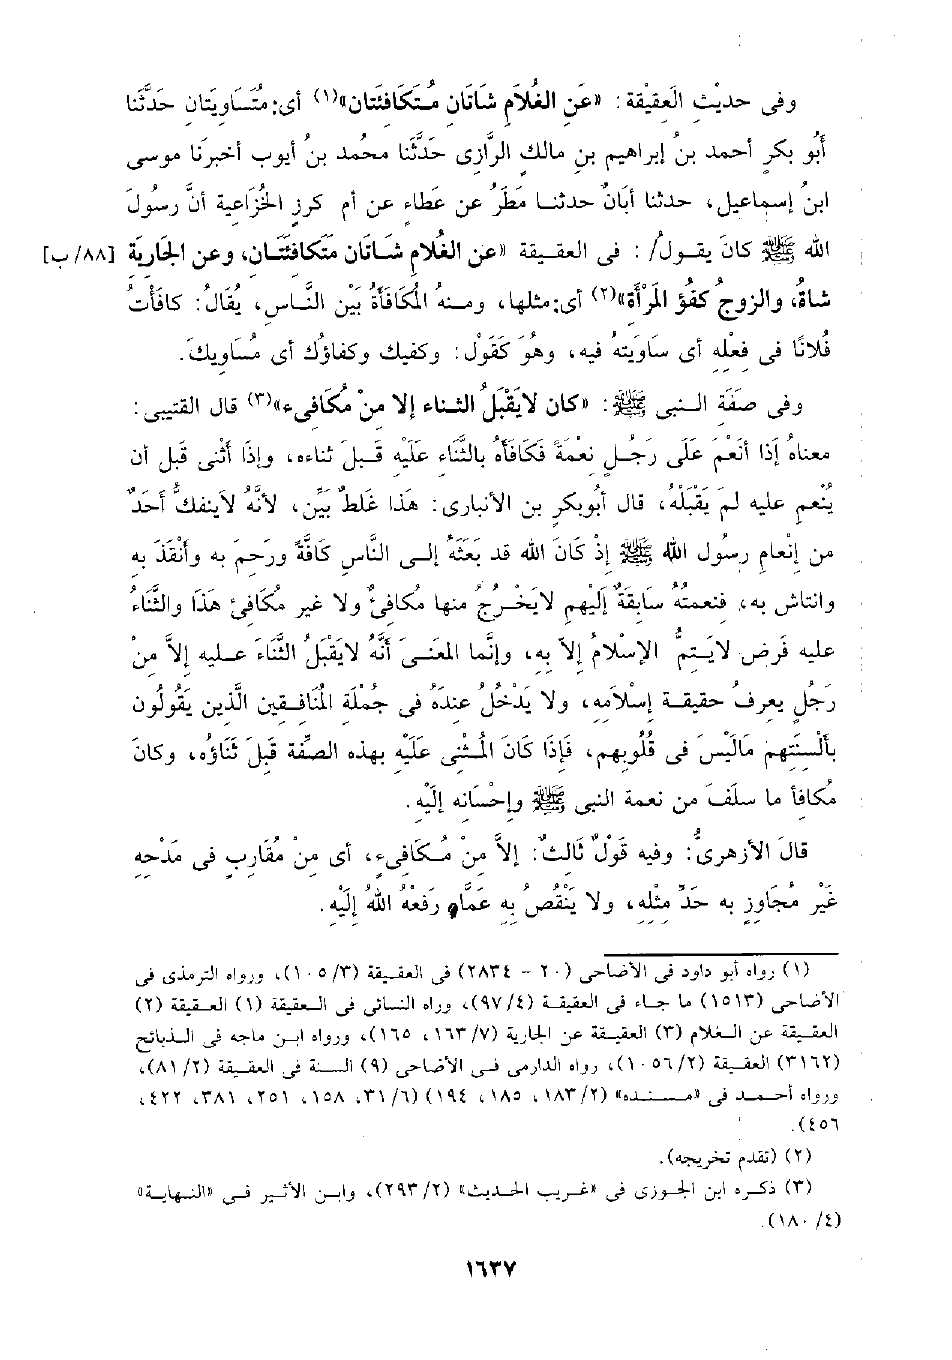 وفى حديْثِ العَقِيْقة: «عَنِ الغُلَامِ شَاتَان مُتكَافئتَان»(١) أى: مُتَسَاويتَان حَدثَّنا
أبُو بكرٍ أحمد بنُ إبراهيم بنِ مالك الرَّازى حَدَّثَنا محمد بنُ أيوب أخبرَنا موسى
ابنُ إسماعيل، حدثنا أبَانٌ حدثنا مطَرٌ عن عَطاءٍ عن أم كرزٍ الخُزاعية أنَّ رسُولَ
الله ﷺ كانَ يقول/: فى العقيقة «عن الغلامِ شَاتَان مَتكَافئَتَان، وعن الجَارية [٨٨/ب]
شاةٌ، والزوجُ كفُؤ المَرْأَة»(٢) أى: مثلها، ومنهُ المُكَافأَةُ بَيْن النَّاس، يُقَالُ: كافأْتُ
فُلانًا فى فعْلِهِ أى سَاوَيتهُ فيه، وهُوَ كَقَوْل: وكفيك وكفاؤك أى مُسَاويكَ.
وفى صفَة النبى ﷺ: «كان لايَقْبَلُ الثناء إلا منْ مُكَافىء»(٣) قال القتيبى:
معناهُ إذَا أنْعَم عَلَى رَجُلٍ نعْمَةً فكَافَأهُ بالثَّنَاء عَلَيْهِ قَبِلَ ثناءه، وإذَا أثْنى قبل أن
يُنْعمِ عليه لمْ يَقْبَلْهُ، قال أبُوبكرٍ بن الأنبارى: هَذا غَلطٌ بَيِّن، لأنَّهُ لاَينفكُّ أحَدٌ
من إنْعامِ رسُول الله ﷺ إذْ كَانَ الله قد بَعَثَهُ إلى النَّاسِ كَافَّةً ورَحِمَ به وأنْقَذَ به
وانتاش به، فنعمتُهُ سابقَةٌ إلَيْهم لايَخْرُجُ منها مكافئٌ ولا غير مُكَافئ هَذَا والثَّنَاءُ
عليه فَرض لايَتمُّ الإسْلامُ إلاَّ بِهِ، وإنَّما المعْنى أنَّهُ لايَقْبَلُ الثَّنَاءَ عليه إلاَّ منْ
رَجُلٍ يعرفُ حقيقة إسْلامه، ولا يَدْخُلُ عندَهُ فى جُمْلَة المُنَافقين الَّذين يَقُولُون
بأَلْسنَتهم مَالَيْسَ فى قُلُوبهم، فَإذَا كَانَ المُثْنى عَلَيْه بهذه الصِّفة قَبِلَ ثَنَاؤُه، وكانَ
مُكافأ ما سلَفَ من نعمة النبى ﷺ وإحْسَانه إلَيْه.
قالَ الأزهرىُّ: وفيه قَوْلٌ ثَالثٌ: إلاَّ منْ مُكَافىء، أى منْ مُقَاربٍ فى مَدْحِهِ
غَيْر مُجَاوزٍ به حَدَّ مثله، ولا يَنْقُصُ بِهِ عَمَّا رَفَعْهُ اللهُ إلَيْهِ.
(١) رواه أبو داود فى الأضاحى (٢٠ - ٢٨٣٤) فى العقيقة (١٠٥/٣)، ورواه الترمذى فى
الأضاحى (١٥١٣) ما جاء فى العقيقة (٩٧/٤)، وراه النسائى فى العقيقة (١) العقيقة (٢)
العقيقة عن الغلام (٣) العقيقة عن الجارية (١٦٣/٧، ١٦٥)، ورواه ابن ماجه فى الذبائح
(٣١٦٢) العقيقة (١٠٥٦/٢)، رواه الدارمى فى الأضاحى (٩) السنة فى العقيقة (٨١/٢)،
ورواه أحمد فى «مسنده» (١٨٣/٢، ١٨٥، ١٩٤) (٣١/٦، ١٥٨، ٢٥١، ٣٨١، ٤٢٢،
٤٥٦).
(٢) (تقدم تخريجه).
(٣) ذكره ابن الجوزى فى «غريب الحديث» (٢٩٣/٢)، وابن الأثير فى «النهاية»
(١٨٠/٤).
١٦٣٧